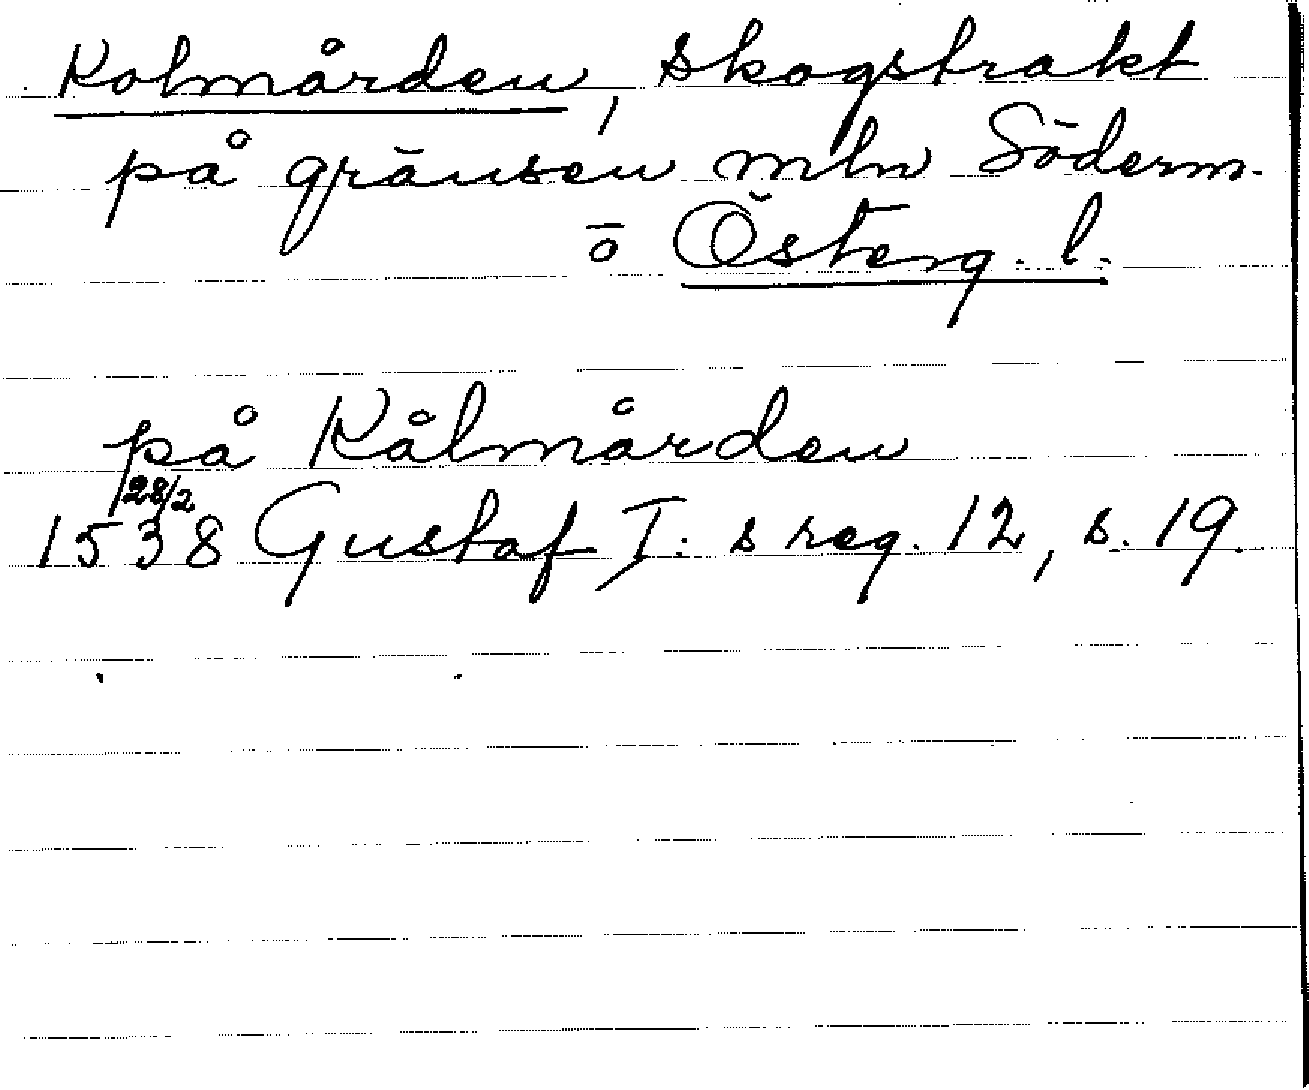 Kolmården, skogstrakt
på gränsen mln Söderm.
o Österg. l.
på Kålmården
28/2
1538 Gustaf I:s reg. 12, s. 19.